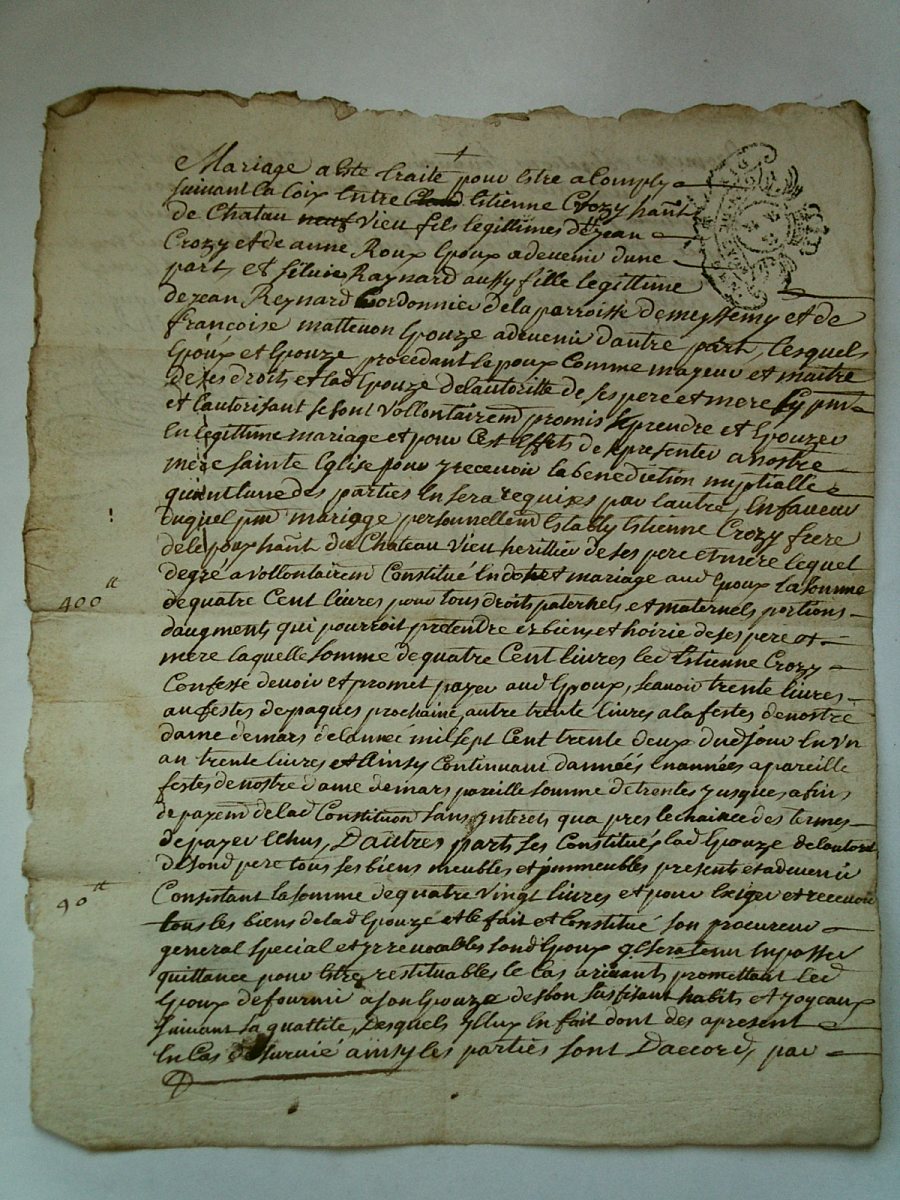 Mariage a este traité pour estre acomply
suivant la Loix Entre Estienne Crozy ha'nt
de Chatau neuf vieu fils legittimes d'Jean
Crozy et de anne Roux Epoux adevenir dune
part, et silvie Raynard aussy fille legittime
de Jean Reynard Cordonnier de la parroisse de meyssemy et de
francoise matteuon Epouze adevenir d'autre part, Lesquels
Epoux et Epouze procedant lepoux Comme mageur et maitre
de ses droits et lad Epouze de lautoritte de ses pere et mere
et lautorisant se sont vollontairem promis se prendre et Epouzer
En legittime mariage et pour Cest Effets de se presenter a nostre
mere sainte Eglise pour y recevoir la benediction nuptialle
quient lune des parties En sera requizes par lautre, En faveur
duquel pnt mariage personnellem Estably Estienne Crozy frere
de lepoux ha'nt du Chateau vieu heritier de ses pere et mere lequel
de gré a vollontairem Constitué En dot et mariage aud Epoux La somme
400 ₶
de quatre Cent livres pour tous droits paternels et maternels portions
daugments qui pourroit pretendre ez biens et hoirie de ses pere et
mere laquelle somme de quatre Cent livres led Estienne Crozy
Confesse devoir et promet payer aud Epoux, scavoir trente livres
au festes de paques prochaine, autre trente livres a la festes de nostre
dame de mars de lannee mil sept Cent trente deux dud Jour En un
an trente livres et Ainsy Continuant dannées En années a pareille
festes de nostre dame de mars pareille somme de trentes jusques a fins
de payem de lad Constituon sans ynterets qua pres lechaince des termes
de payer Echus, D'autres parts ses Constitué lad Epouze de lautorit
de sond pere tous ses biens meubles et ymmeubles presents et advenir
90 ₶
Consistant la somme de quatre vingt livres et pour Exiger et recevoir
tous les biens de lad Epouze et le fait et Constitué son procureur
general special et yrrevocables sond Epoux q. sera tenu En passer
quittance pour Estre restituables le Cas arivant, promettant led
Epoux de fournir a son Epouze de son sufisant habits et Joyeaux
suivant sa quallité, Lesquels y Eux En fait dont des apresent
En Cas de survie ainsy les parties sont D'accord, par